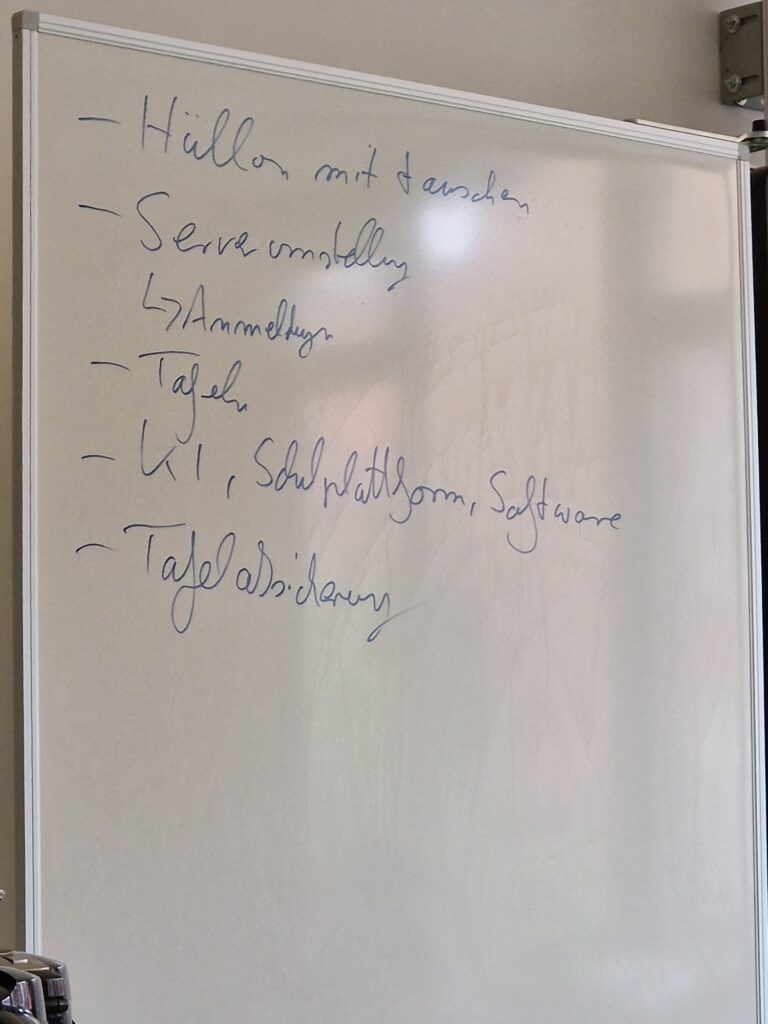 - Hüllen mit tauschen
- Serverumstellung
↳ Anmeldungen
- Tafeln
- KI, Schulplattform, Software
- Tafelabsicherung